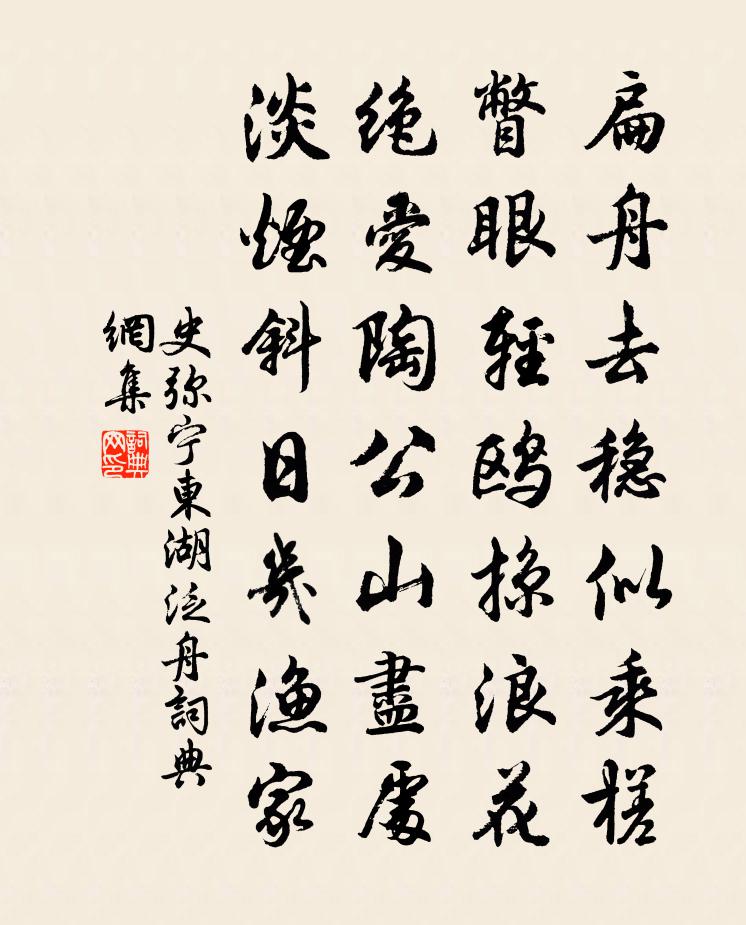 扁舟去穏似乘槎
瞥眼輕鸥掠浪花
絶愛陶公山盡處
淡煙斜日幾漁家
史弥宁東湖泛舟詞典
網集
詞典
网印